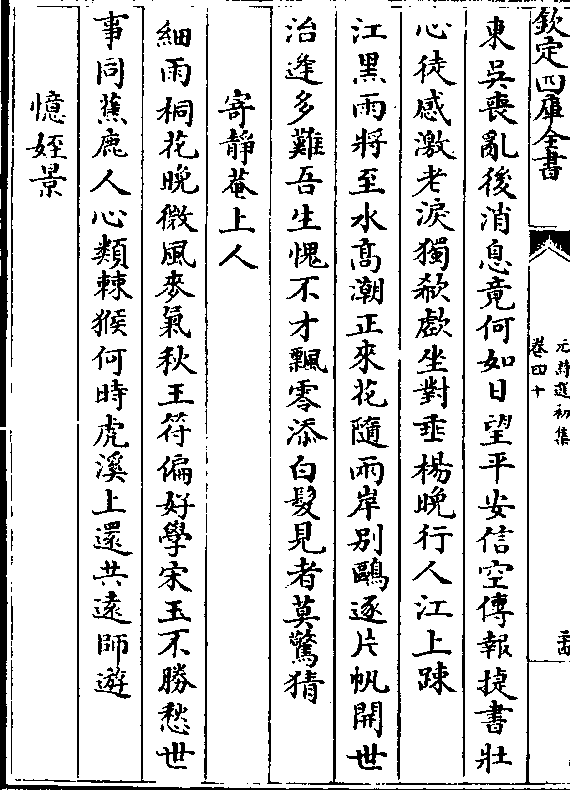 欽定四庫全書
元詩選初集
卷四十
東吳喪亂後消息竟何如日望平安信空傳報捷書壯
心徒感激老淚獨欷歔坐對垂楊晩行人江上踈
江黑雨將至水高潮正來花隨兩岸别鷗逐片帆開世
治逢多難吾生愧不才飄零添白髮見者莫驚猜
寄靜菴上人
細雨桐花晚微風麥氣秋王符偏好學宋玉不勝愁世
事同蕉鹿人心類棘猴何時虎溪上還共遠師遊
憶姪景